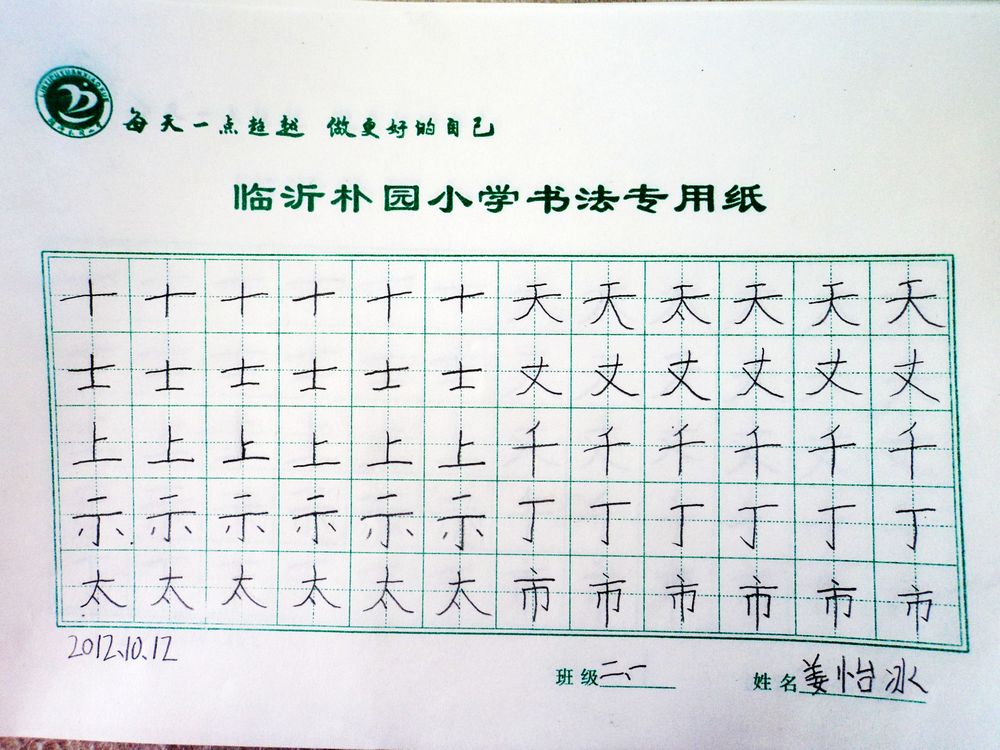 每天一点超越 做更好的自己
临沂朴园小学书法专用纸
十 十 十 十 十 十 天 天 太 天 天 天
士 士 士 士 士 士 丈 丈 丈 丈 丈 丈
上 上 上 上 上 上 千 千 千 千 千 千
示 示 示 示 示 示 丁 丁 丁 丁 丁 丁
太 太 太 太 太 太 市 市 市 市 市 市
2012.10.12
班级 二、一 姓名 姜怡冰